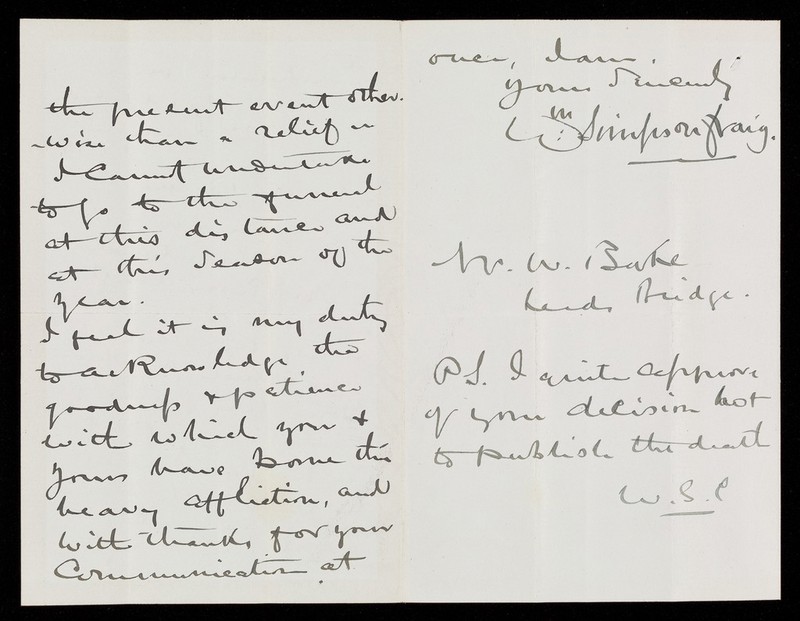 the present event other-
-wise than a relief
I cannot undertake
to go to the funeral
at this distance and
at this season of the
year.
I feel it is my duty
to acknowledge the
goodness & patience
with which you &
yours have borne this
heavy affliction, and
with thanks for your
communication at
once, I am,
yours Sincerely
Wm. Simpson Craig.
Mr. W. Bake
Leeds Bridge.
P.S. I quite approve
of your decision not
to publish the death
W.S.C